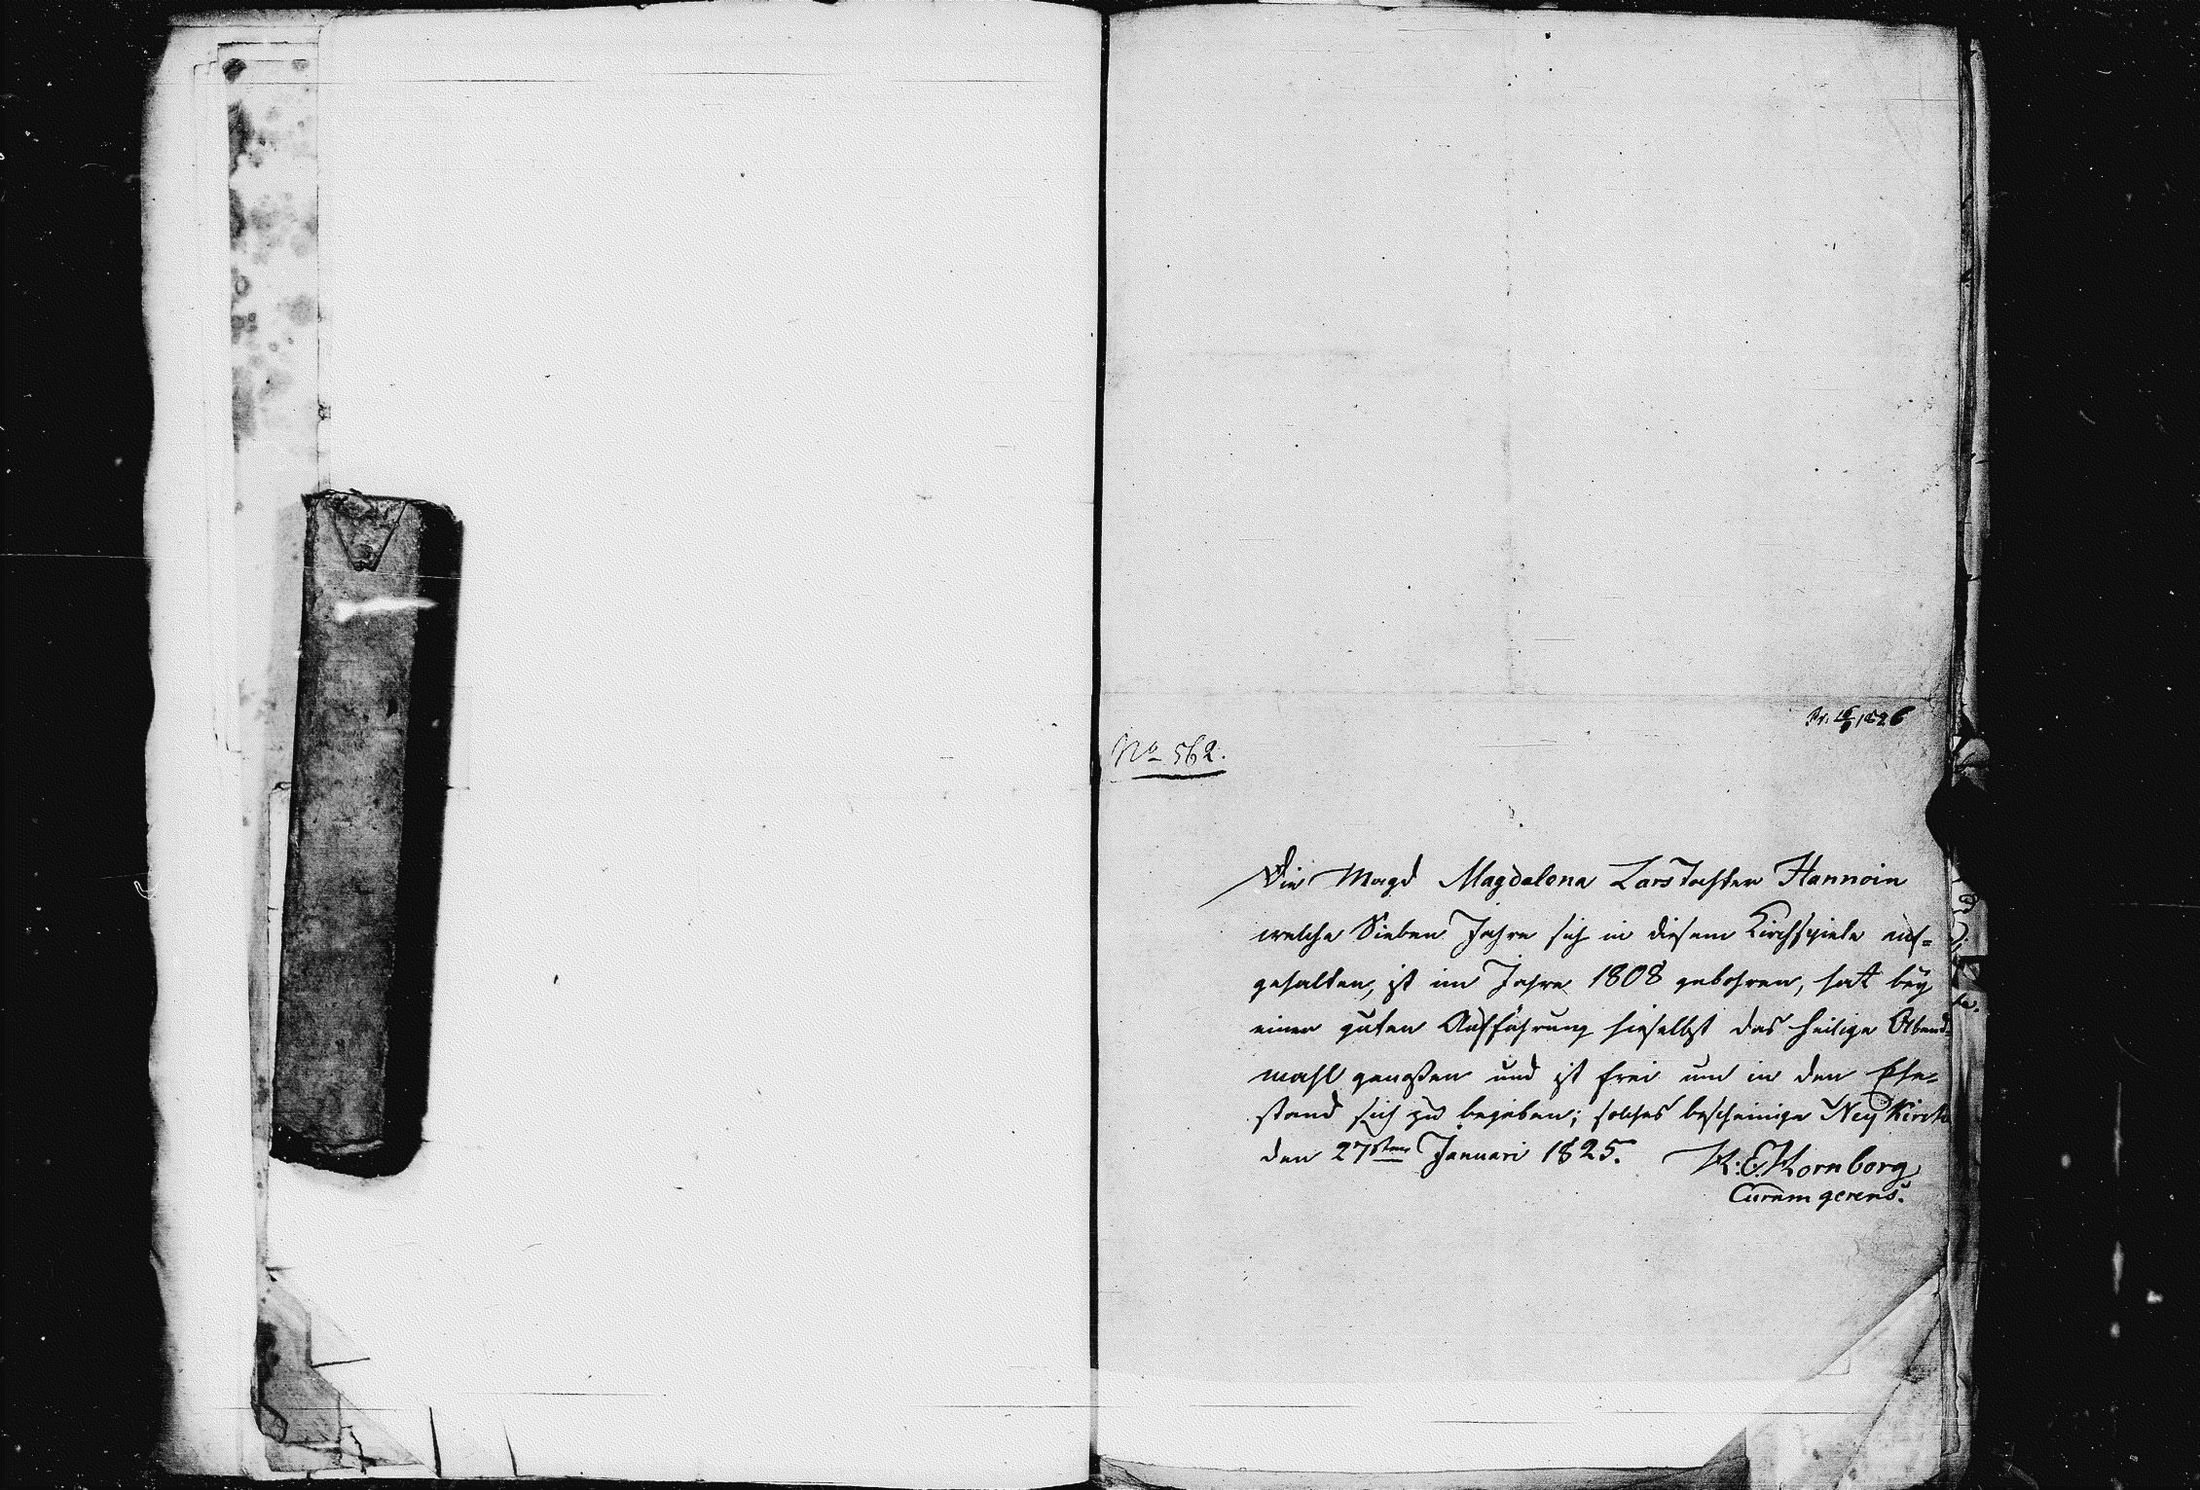 Pr. 16/9 1826
No 562.
Die Magd Magdalena Larstochter Hannoin
welche Sieben Jahre sich in diesem Kirchspiele auf=
gehalten, ist im Jahre 1808 gebohren, hat bey
einer guten Aufführung hieselbst das heilige Abend=
mahl genoßen und ist frei um in den Ehe=
stand sich zu begeben; solches bescheinige Ney Kircke
den 27sten Januari 1825. K: E. Kornborg
Curam gerens.